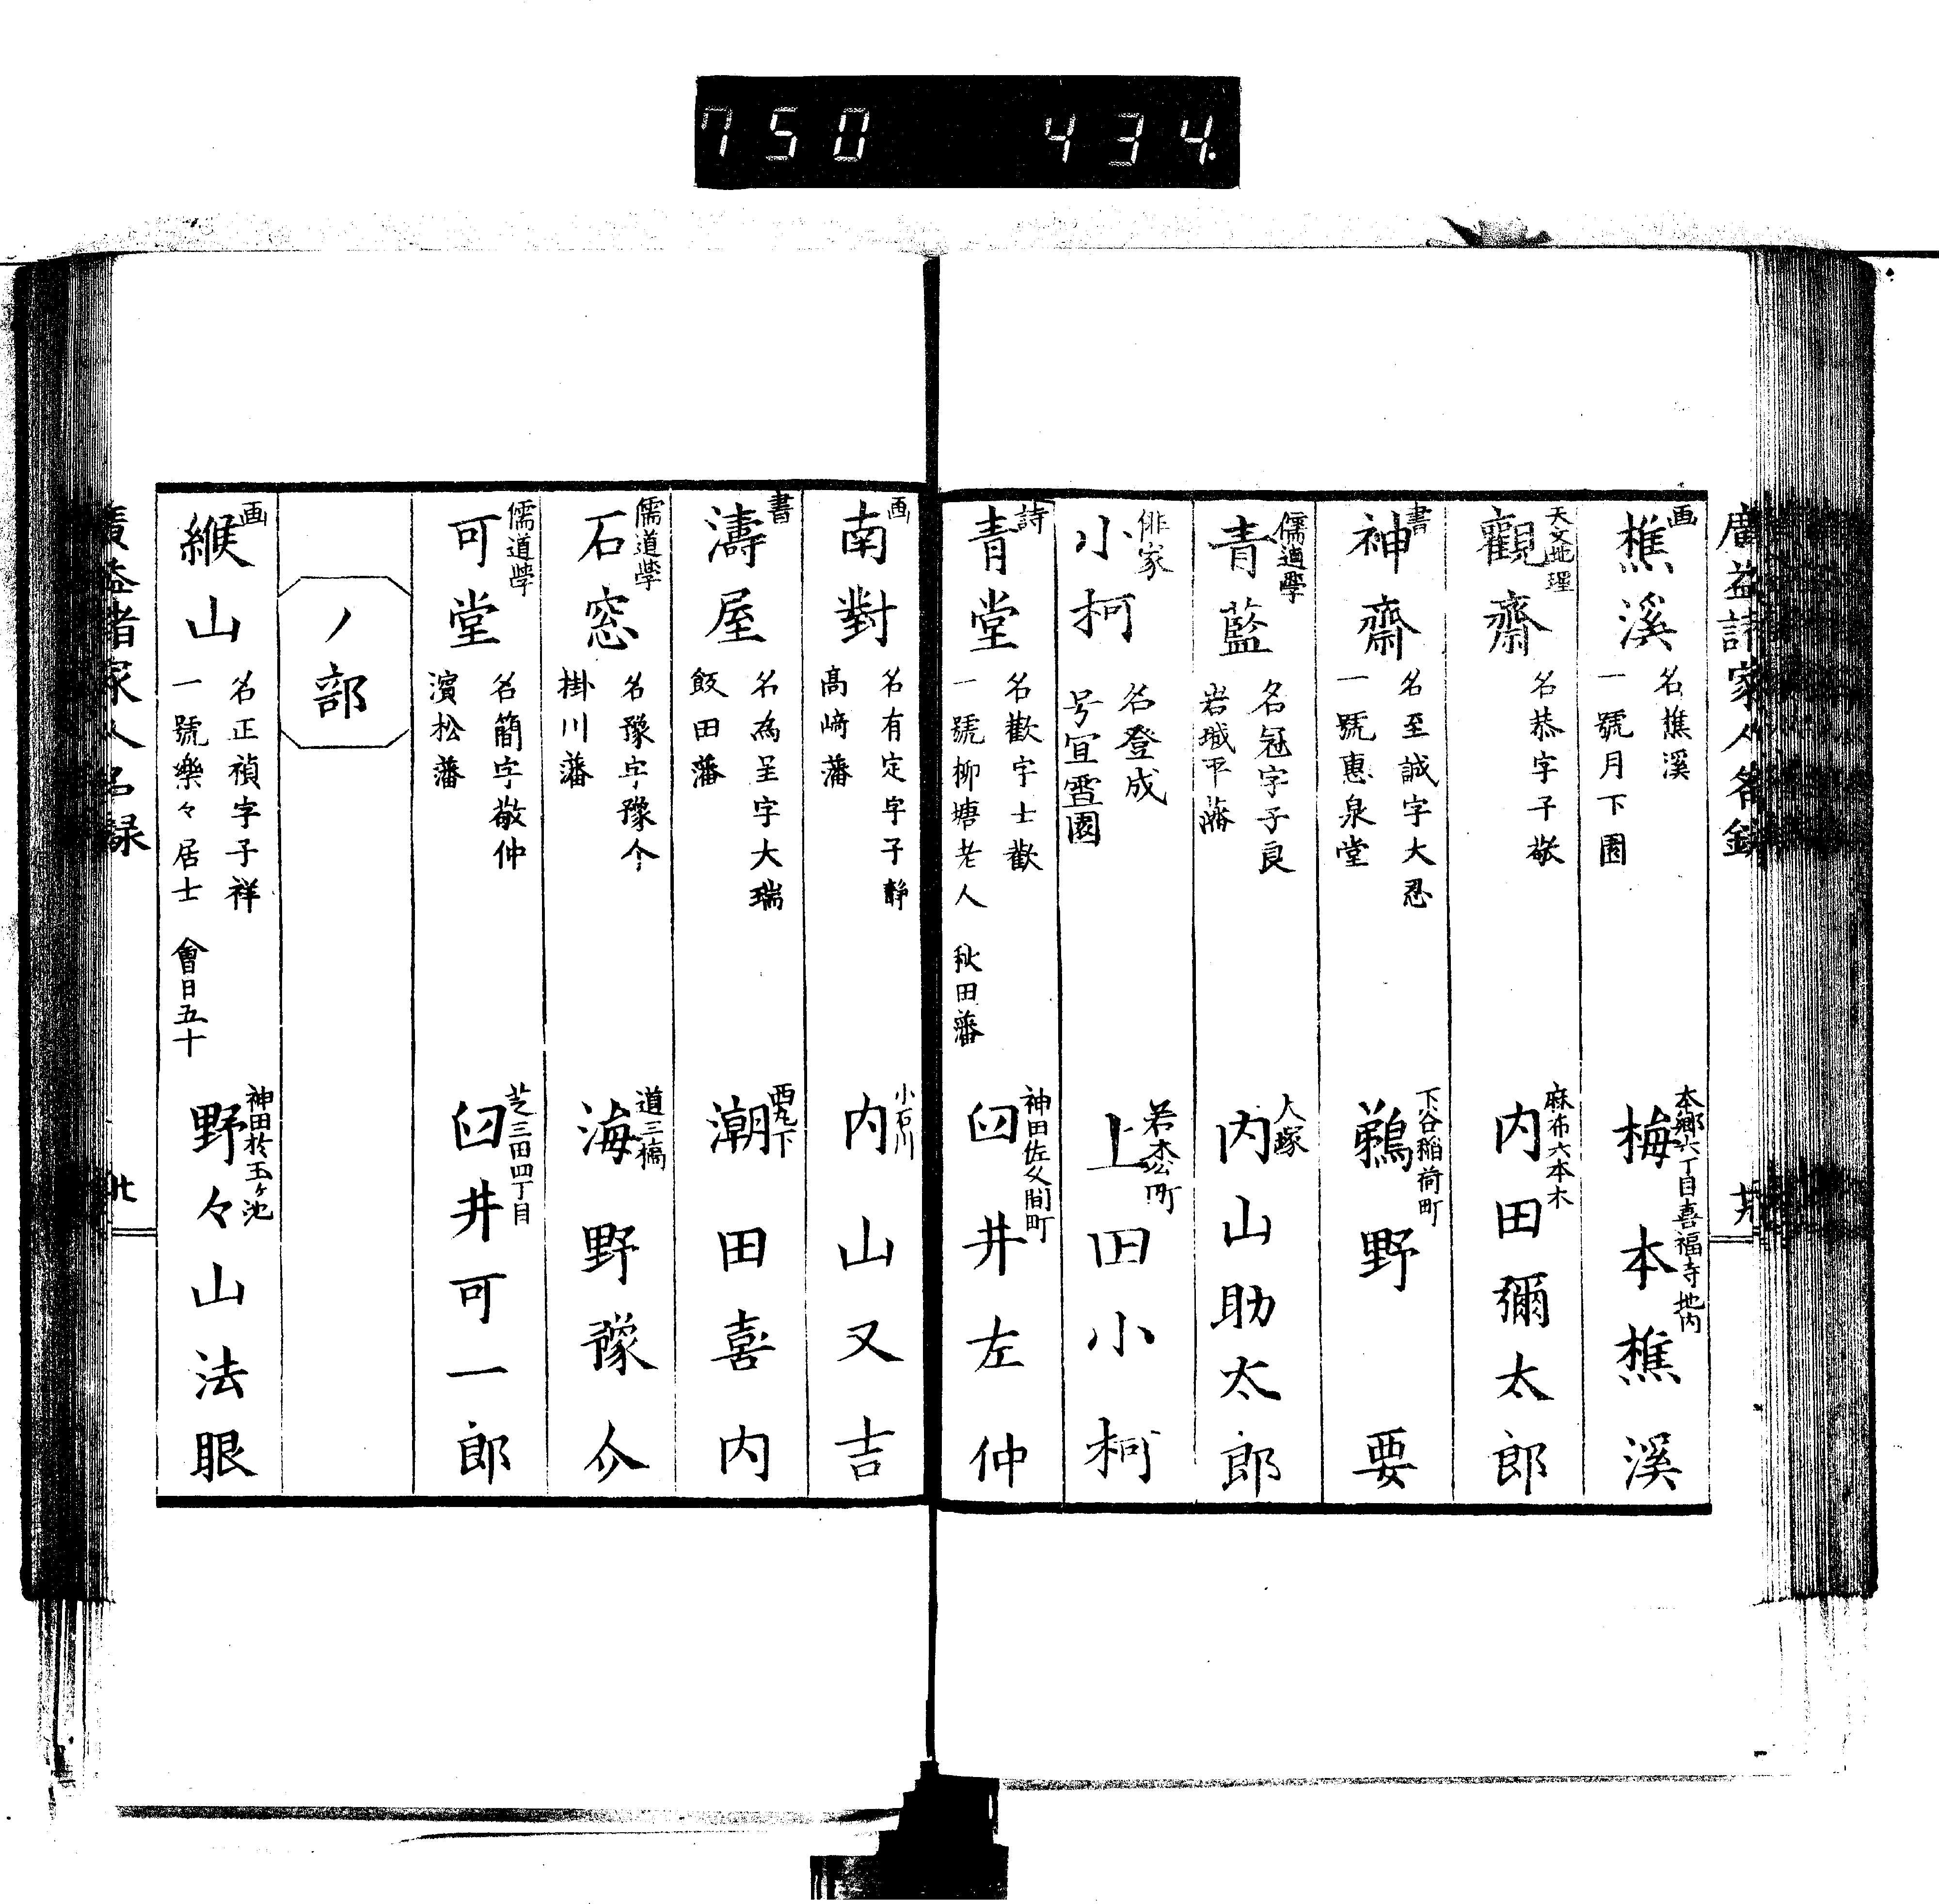 750 434.
廣益諸家人名録
画
樵溪
名樵溪
一號月下園
本郷六丁目喜福寺地内
梅本樵溪
天文地理
觀齋
名恭字子敬
麻布六本木
内田彌太郎
書
神齋
名至誠字大忍
一號惠泉堂
下谷稲荷町
鵜野要
儒道學
青藍
名冠字子良
岩城平藩
大塚
内山助太郎
俳家
小柯
名登成
号宜雪園
若松町
上田小柯
詩
青堂
名歡字士歡
一號柳塘老人 秋田藩
神田佐久間町
臼井左仲
画
南對
名有定字子靜
髙﨑藩
小石川
内山又吉
書
濤屋
名為呈字大瑞
飯田藩
西丸下
潮田喜内
儒道學
石窓
名豫字豫介
掛川藩
道三橋
海野豫介
儒道學
可堂
名簡字敬仲
濱松藩
芝三田四丁目
臼井可一郎
ノ部
画
緱山
名正禎字子祥
一號樂々居士 會日五十
神田於玉ヶ池
野々山法眼
廣益諸家人名録